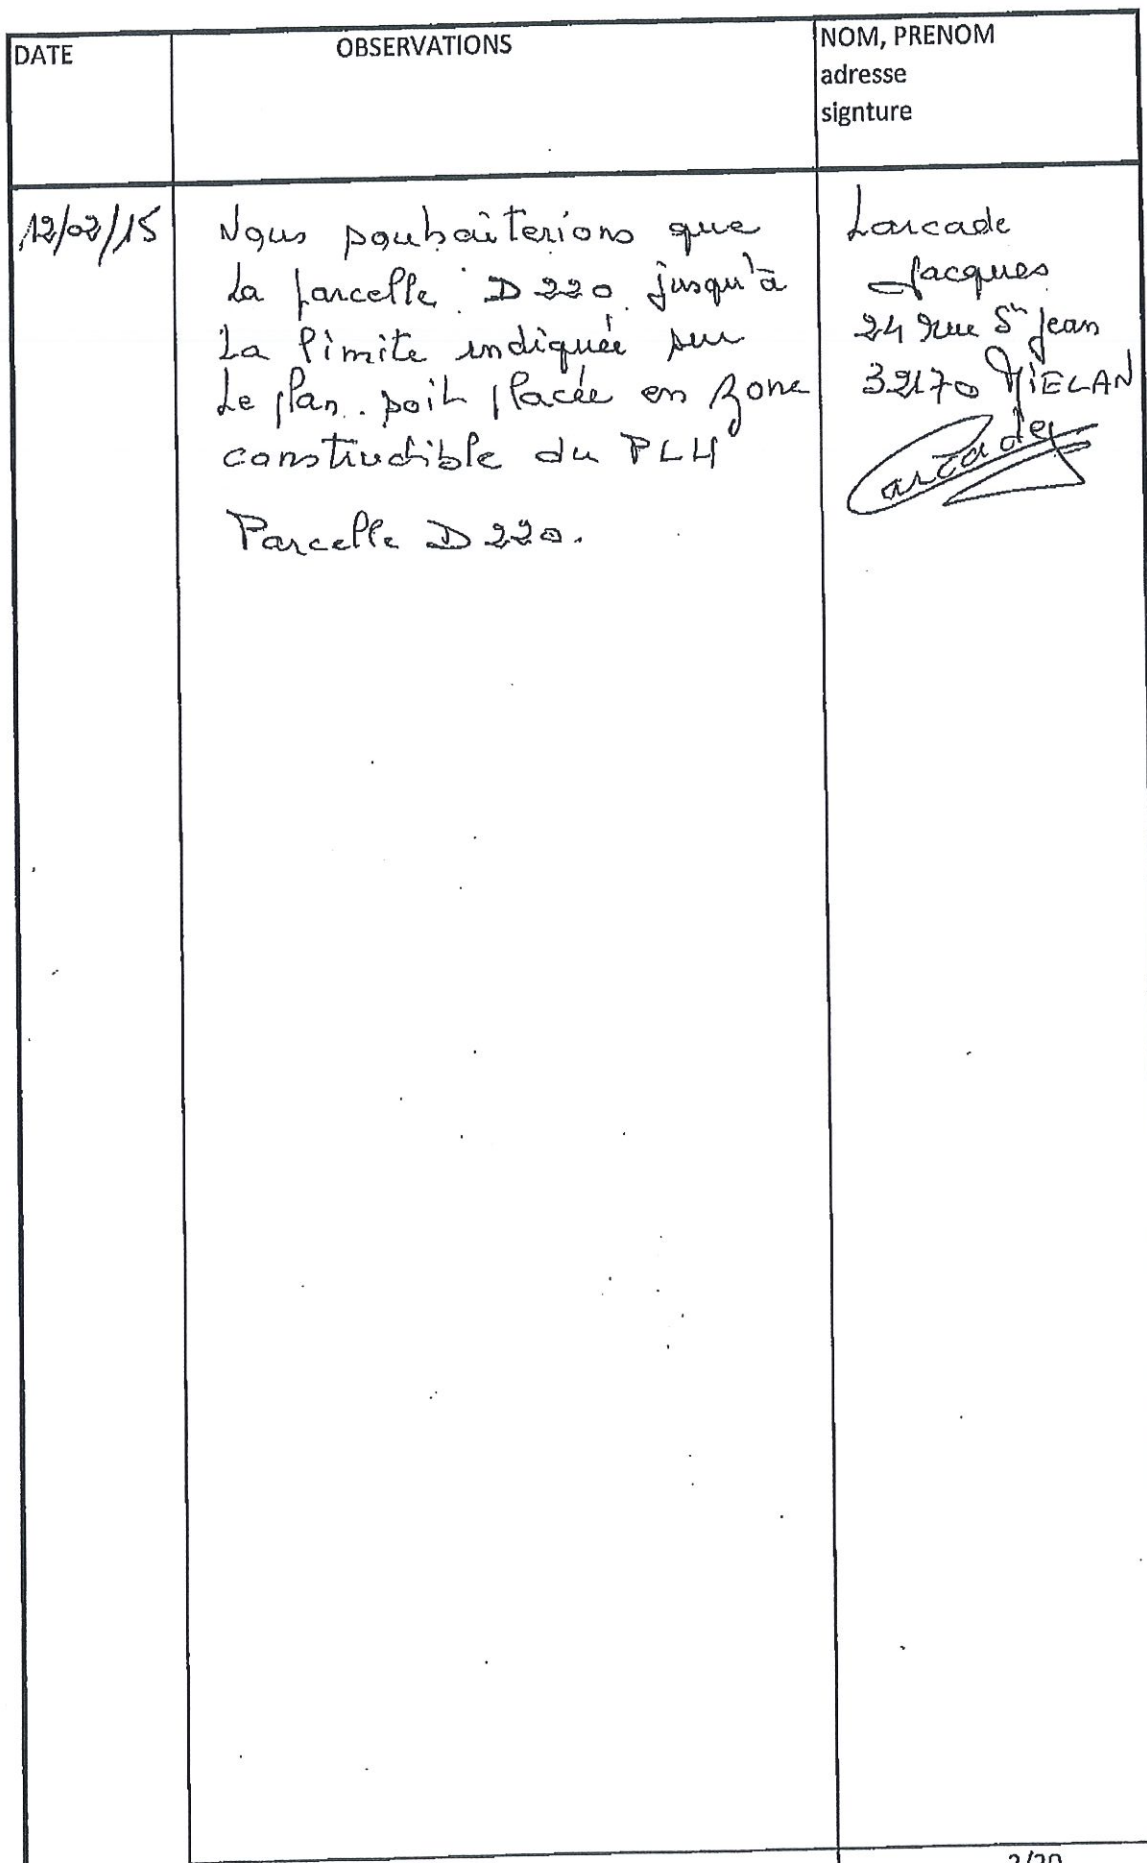 DATE
OBSERVATIONS
NOM, PRENOM
adresse
signture
12/02/15
Nous souhaiterions que
la parcelle D 220 jusqu'à
la limite indiquée sur
le plan. soit placée en zone
constructible du PLU
Parcelle D 220.
Larcade
Jacques
24 rue St Jean
32170 MiELAN
Larcade